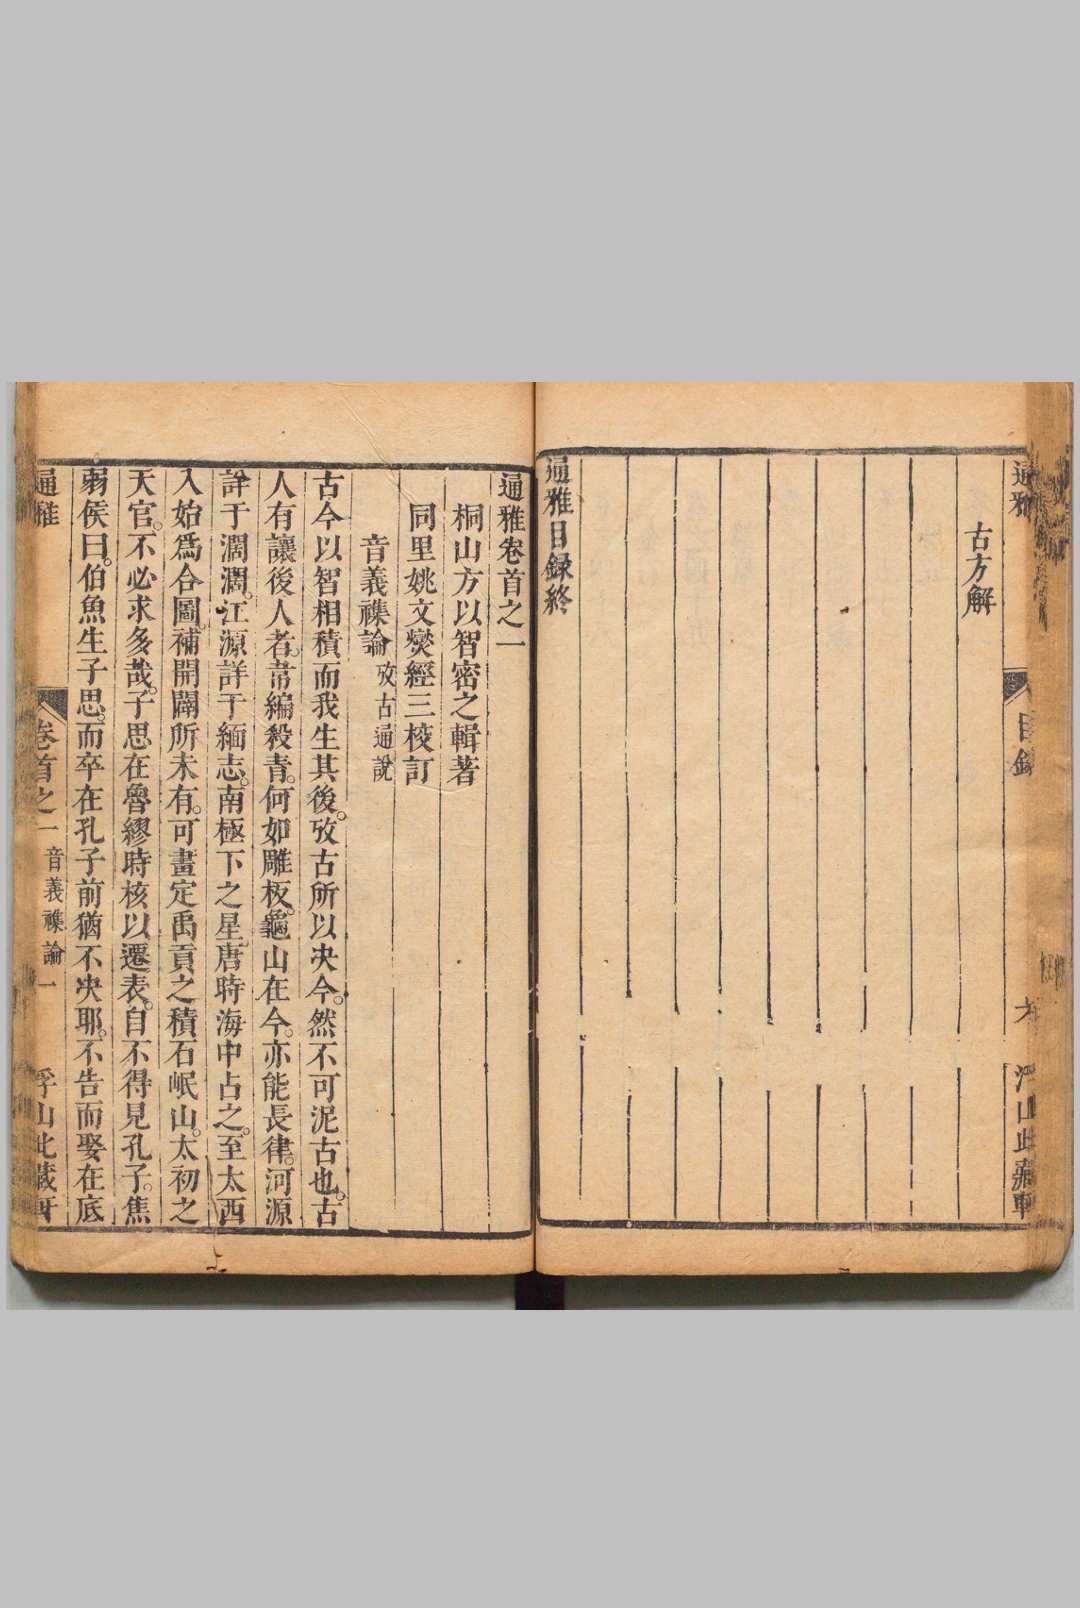 通雅
目錄
浮山此藏軒
古方解
通雅目録終
通雅卷首之一
桐山方以智密之輯著
同里姚文燮經三校訂
音義襍論 攷古通說
古今以智相積而我生其後。攷古所以决今。然不可泥古也。古
人有讓後人者。韋編殺青。何如雕板。龜山在今。亦能長律。河源
詳于濶濶。江源詳于緬志。南極下之星。唐時海中占之。至太西
入始爲合圖。補開闢所未有。可畫定禹貢之積石岷山。太初之
天官。不必求多哉。子思在魯繆時核以遷表。自不得見孔子。焦
弱侯曰。伯魚生子思。而卒在孔子前猶不决耶。不告而娶在底
通雅
卷首之一 音義襍論 一
浮山此藏軒